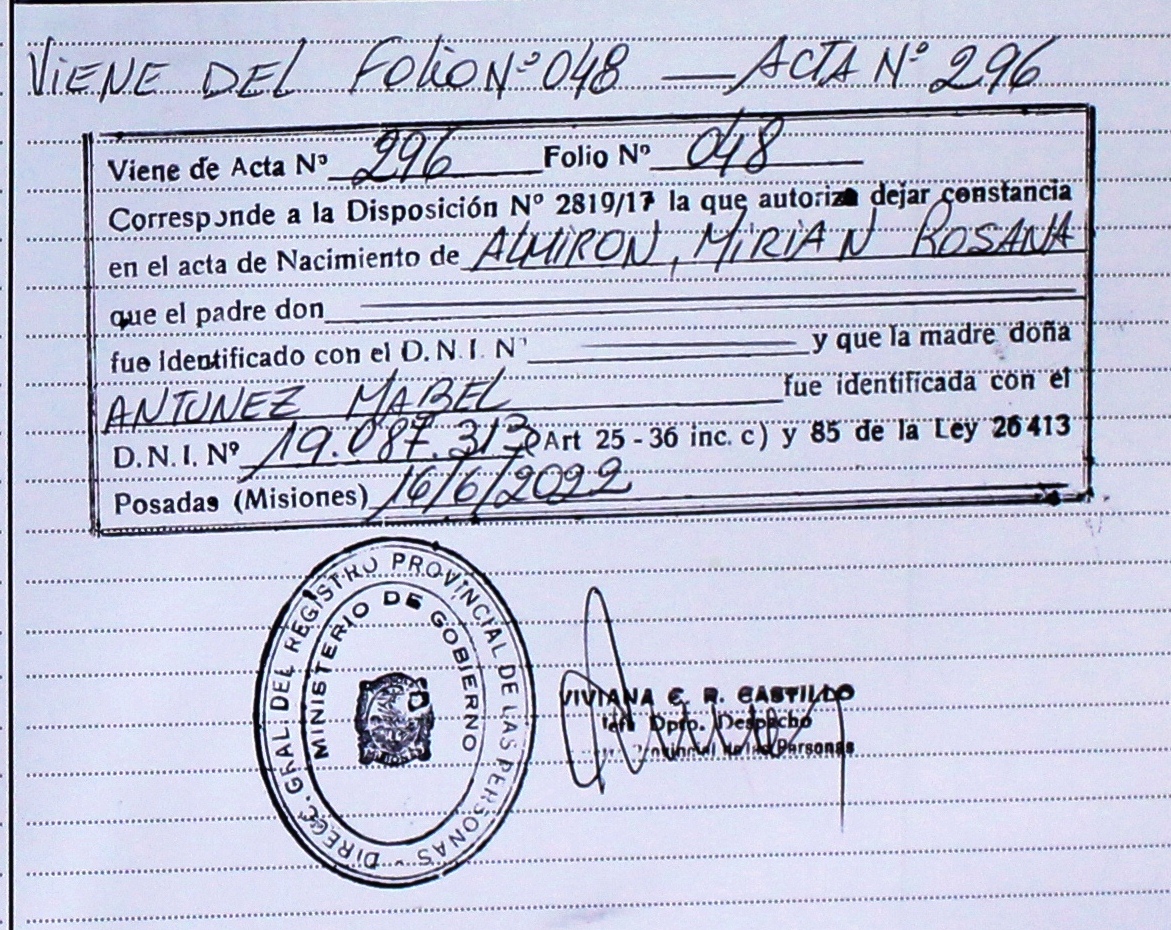 VIENE DEL FOLIO Nº 048 — ACTA Nº 296
Viene de Acta Nº 296 Folio Nº 048
Corresponde a la Disposición Nº 2819/17 la que autoriza dejar constancia
en el acta de Nacimiento de ALMIRON, MIRIAN ROSANA
que el padre don
fue identificado con el D.N.I. Nº y que la madre doña
ANTUNEZ MABEL fue identificada con el
D.N.I. Nº 19.087.313 (Art 25 - 36 inc. c) y 85 de la Ley 26413
Posadas (Misiones) 16/6/2022
DIREC. GRAL. DEL REGISTRO PROVINCIAL DE LAS PERSONAS -
MINISTERIO DE GOBIERNO
VIVIANA C. R. CASTILLO
Dpto. Despacho
Provincial de las Personas